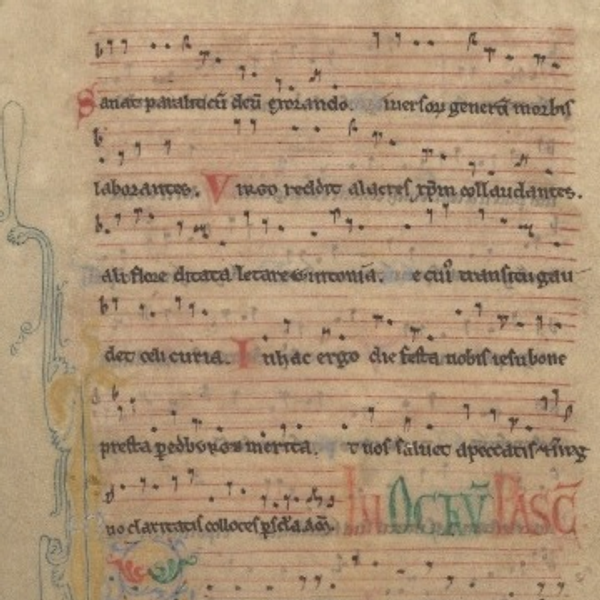 Sanat paraliticũ deũ gĩorando. iuersoꝝ generã morbis
laborantes. Virgo reddit alacres xp̃m collaudantes.
ali flore ditata letare saxonia. e cui᷒ transitu gau
det celi curia. In hac ergo die festa nobis iesu bone
presta ꝑ merita. t nos saluet a peccatis
no claritatis colloces ꝑ sc̃la. am̃.
IN OCTAV̄ PASC̄